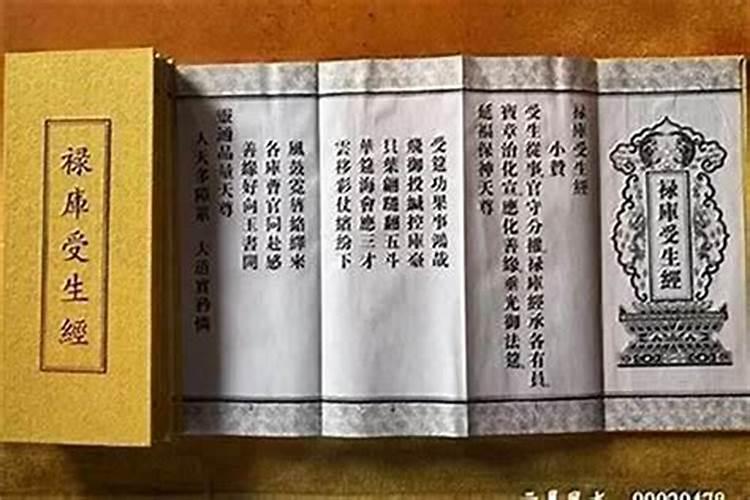 祿庫受生經
祿庫受生經
祿庫受生經
小贊
受生從事官守分權祿庫經承各有員
寶章治化宣應化善緣垂光御法筵
延福保神天尊
受筵功果事鴻哉
飛御投緘控庫臺
貝葉翩翻五斗
華筵海會應三才
雲移彩仗繽紛下
風鼓霓旌絡繹來
各庫曹官同赴感
善緣好向玉書開
靈通品量天尊
人天多障
大道實矜憐